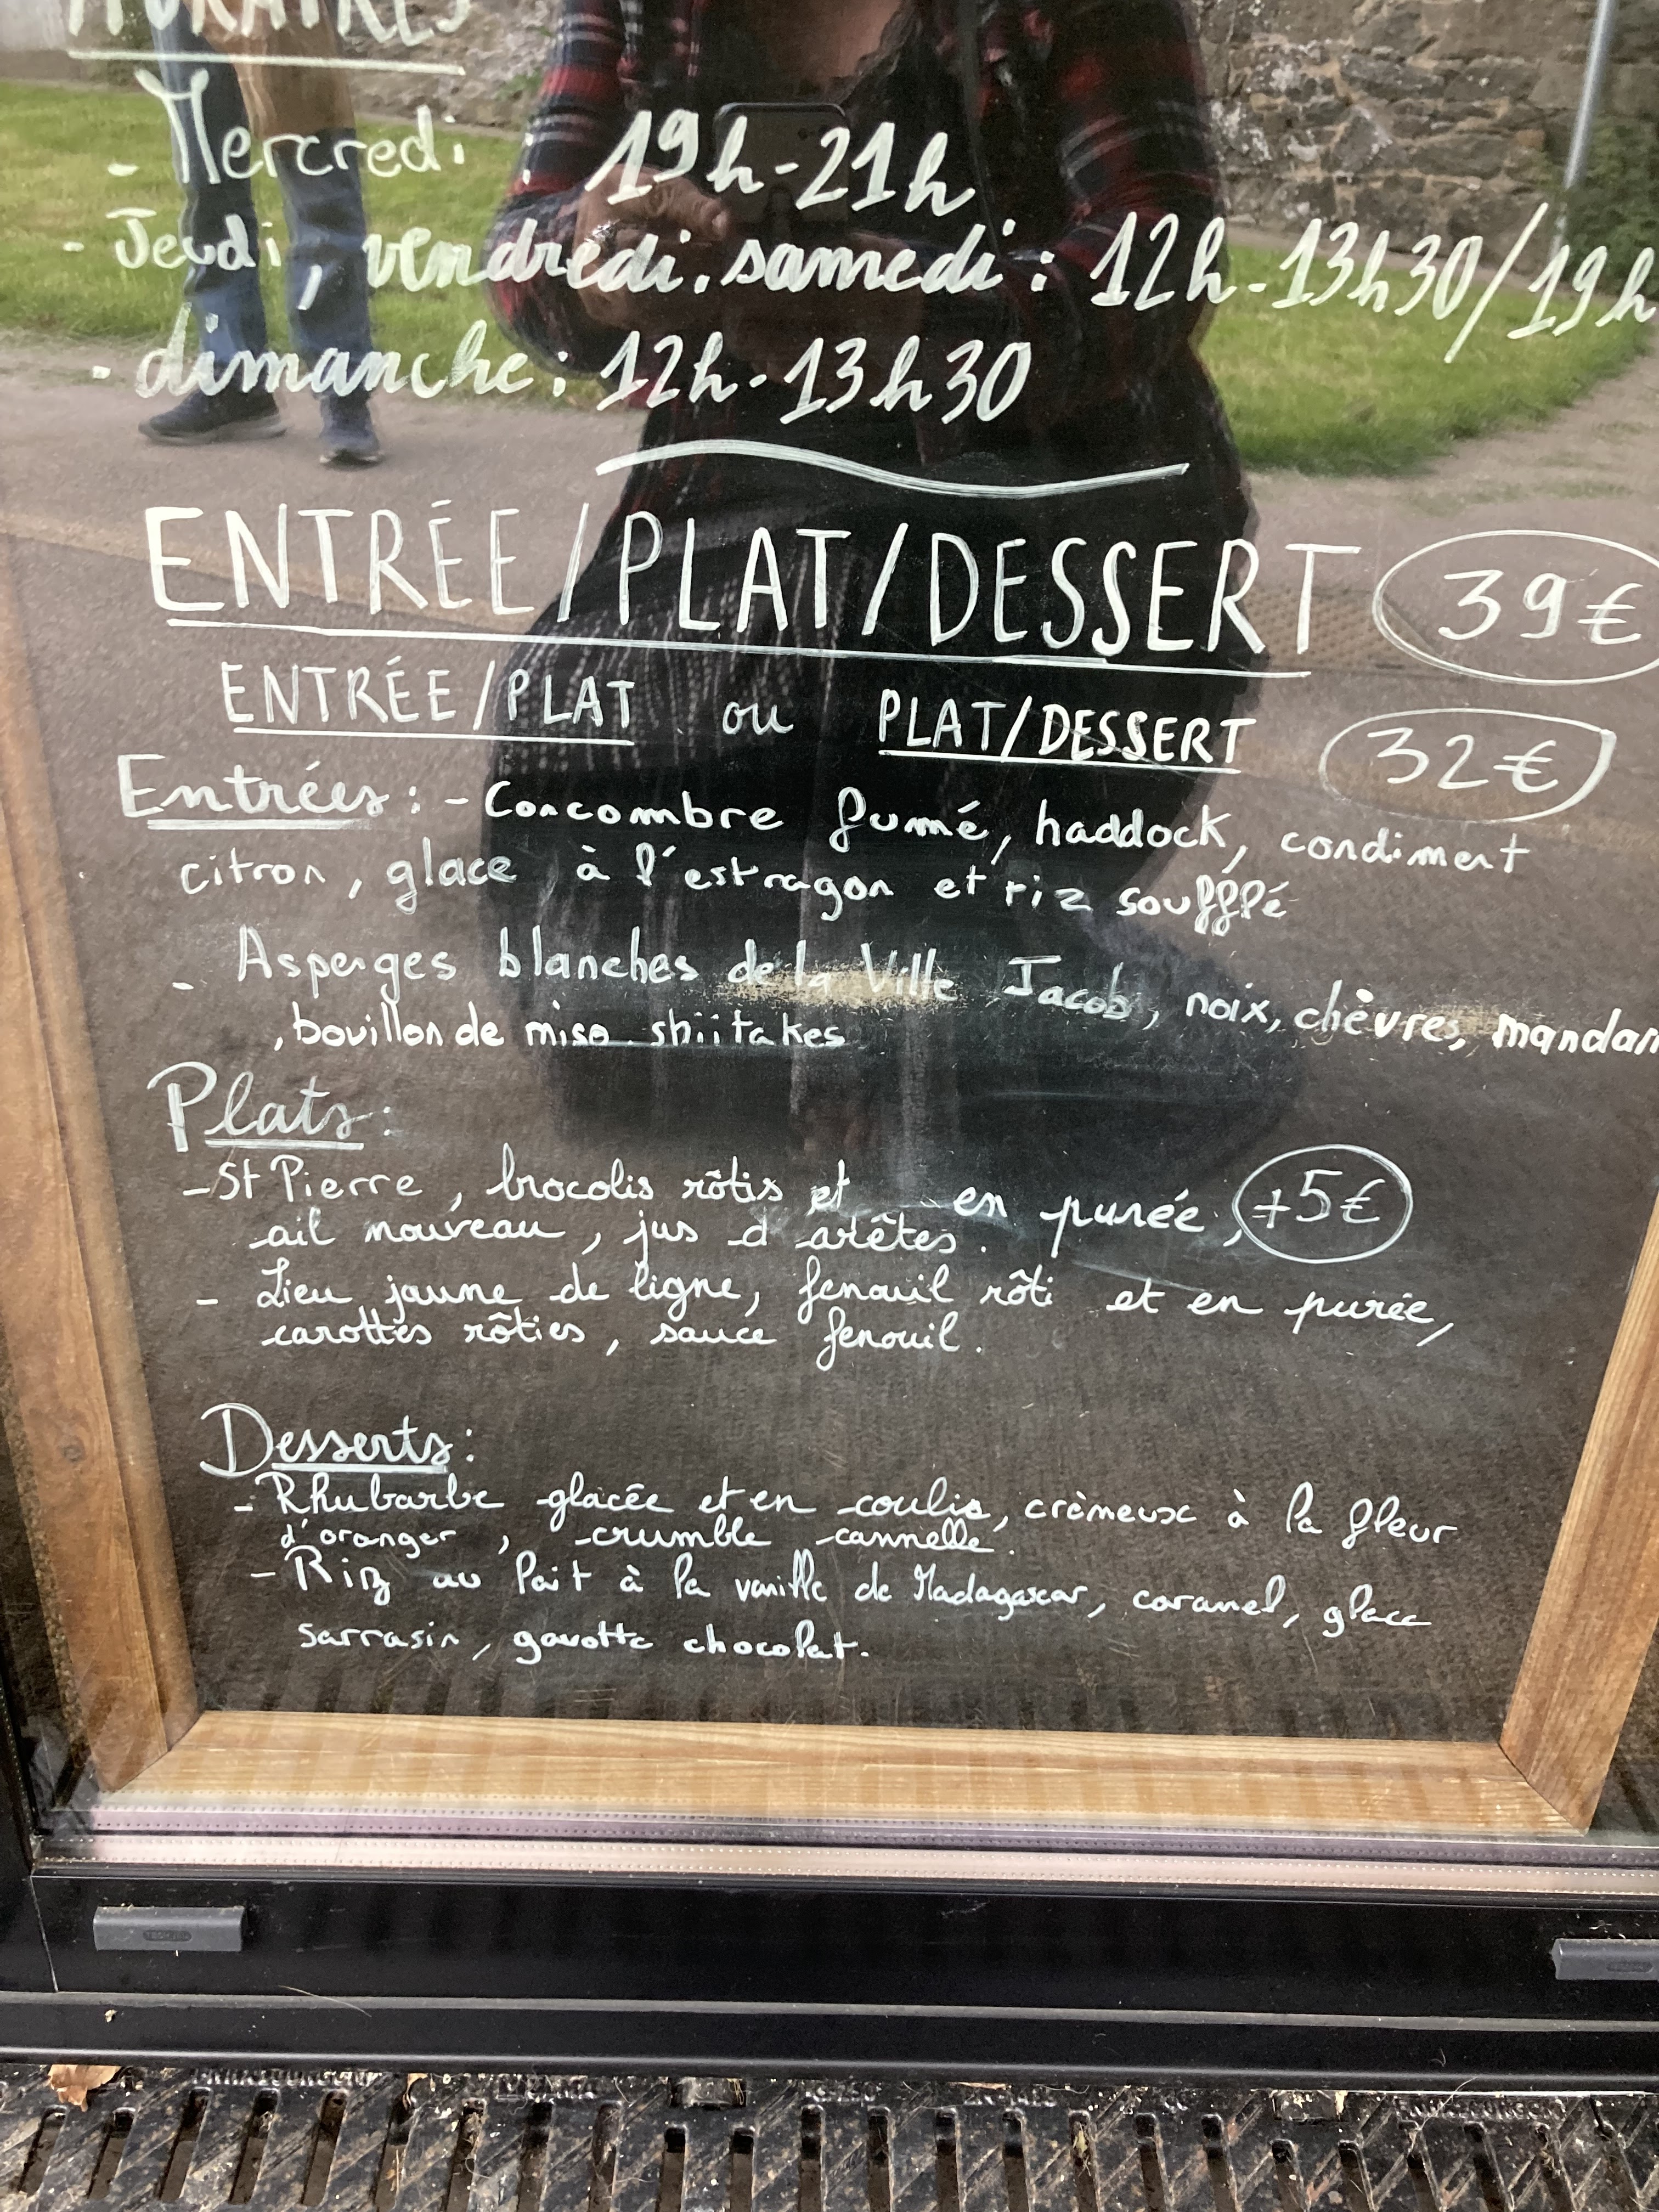 HORAIRES
- Mercredi : 19h-21h
- Jeudi, vendredi, samedi : 12h-13h30/19h
- dimanche : 12h-13h30
ENTRÉE/PLAT/DESSERT 39€
ENTRÉE/PLAT ou PLAT/DESSERT 32€
Entrées : - Concombre fumé, haddock, condiment
citron, glace à l'estragon et riz soufflé
- Asperges blanches de la Ville Jacob, noix, chèvres, mandar
, bouillon de miso shiitakes
Plats :
- St Pierre, brocolis rôtis et en purée, +5€
ail nouveau, jus d arêtes.
- Lieu jaune de ligne, fenouil rôti et en purée,
carottes rôties, sauce fenouil.
Desserts :
- Rhubarbe glacée et en coulis, crèmeux à la fleur
d'oranger, crumble cannelle.
- Riz au lait à la vanille de Madagascar, caramel, glace
sarrasin, gavotte chocolat.